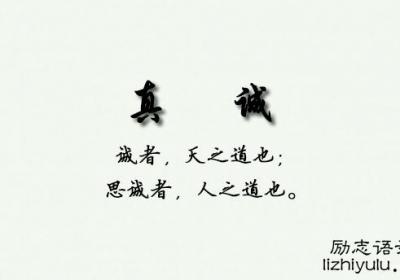 真 诚
诚者，天之道也；
思诚者，人之道也。
励志语
lizhiyulu.